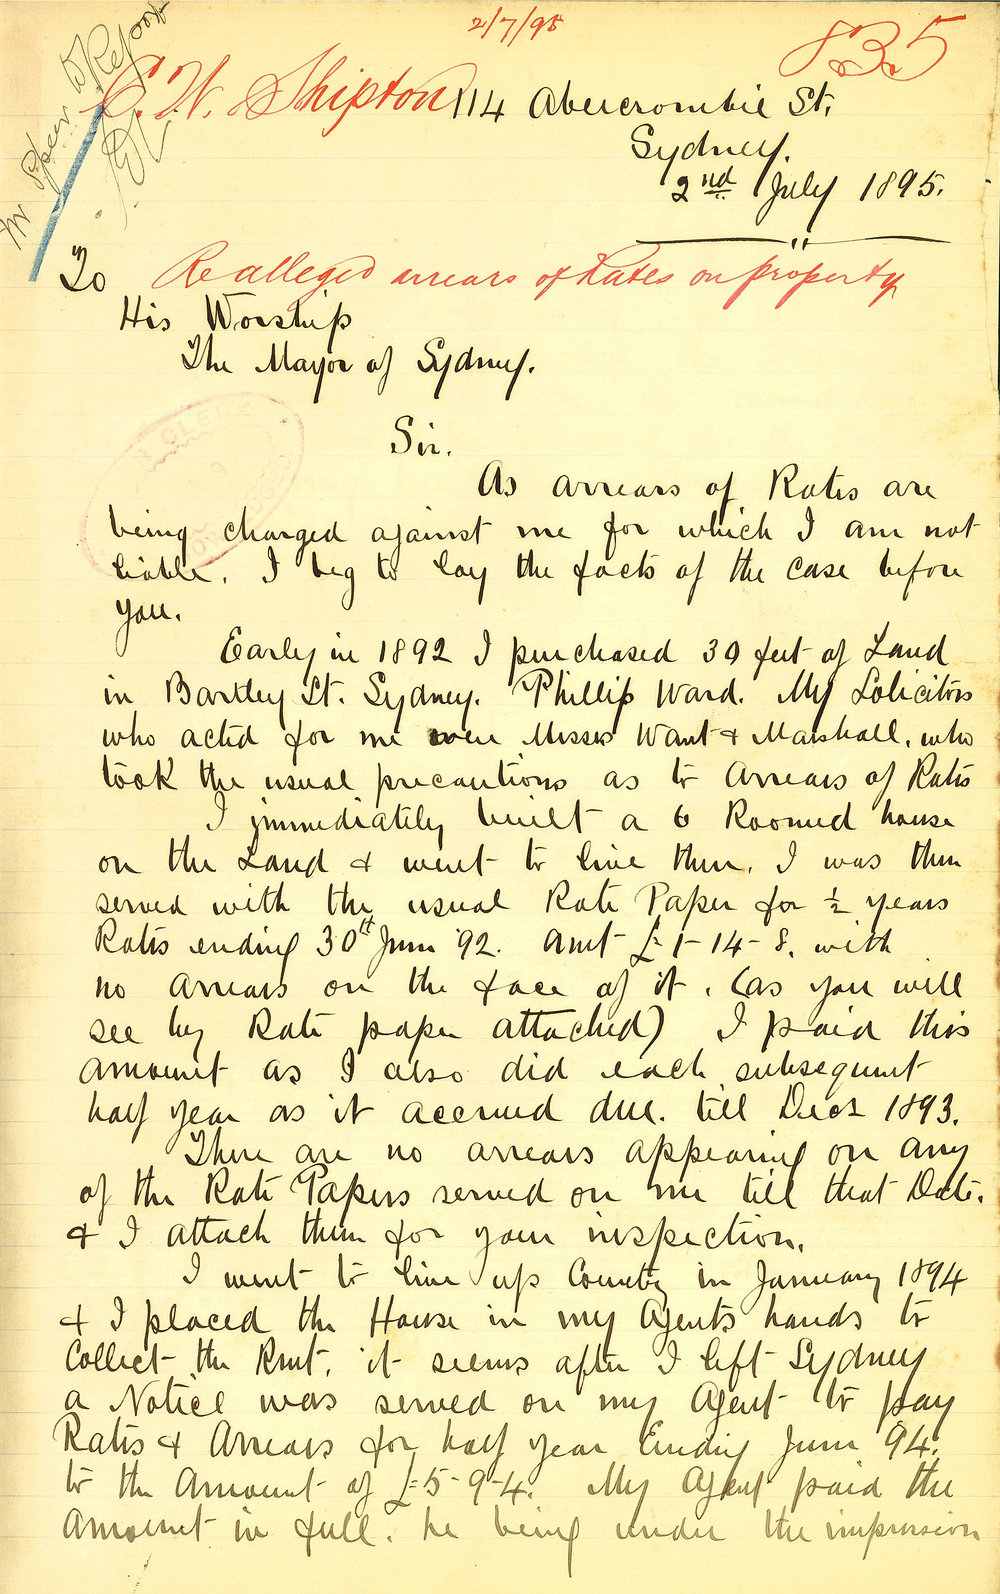 2/7/95
835
C. W. Shipton
114 Abercrombie St.
Sydney.
2nd July 1895.
Mr
Report
To
Re alleged arrears of Rates on property
His Worship
The Mayor of Sydney.
CLERK
Sir.
As arrears of Rates are
being charged against me for which I am not
liable. I beg to lay the facts of the case before
you.
Early in 1892 I purchased 30 feet of Land
in Bartley St. Sydney. Phillip Ward. My Solicitors
who acted for me were Messrs Want & Marshall, who
took the usual precautions as to Arrears of Rates
I immediately built a 6 Roomed house
on the Land & went to live there. I was then
served with the usual Rate Paper for ½ years
Rates ending 30th June '92. Amt £1-14-8. with
no arrears on the face of it. (as you will
see by Rate paper attached) I paid this
amount as I also did each subsequent
half year as it accrued due. till Decr 1893.
There are no arrears appearing on any
of the Rate Papers served on me till that Date.
& I attach them for your inspection.
I went to live up Country in January 1894
& I placed the House in my Agents hands to
Collect the Rent. it seems after I left Sydney
a Notice was served on my Agent to pay
Rates & Arrears for half year Ending June 94.
to the Amount of £5-9-4. My Agent paid the
Amount in full. he being under the impression